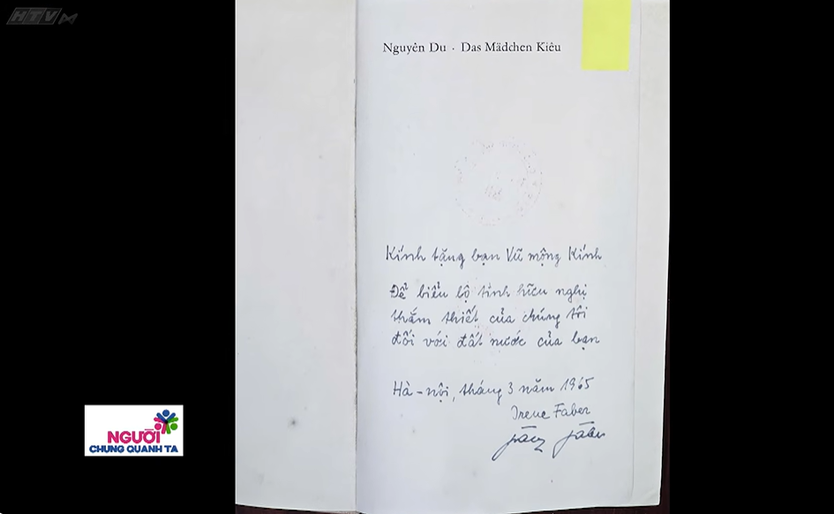 HTV
Nguyên Du · Das Mädchen Kiêu
Kính tặng bạn Vũ mộng Kính
Để biểu bộ tình hữu nghị
thắm thiết của chúng tôi
đối với đất nước của bạn
Hà-nội, tháng 3 năm 1965
Irene Faber
NGƯỜI
CHUNG QUANH TA